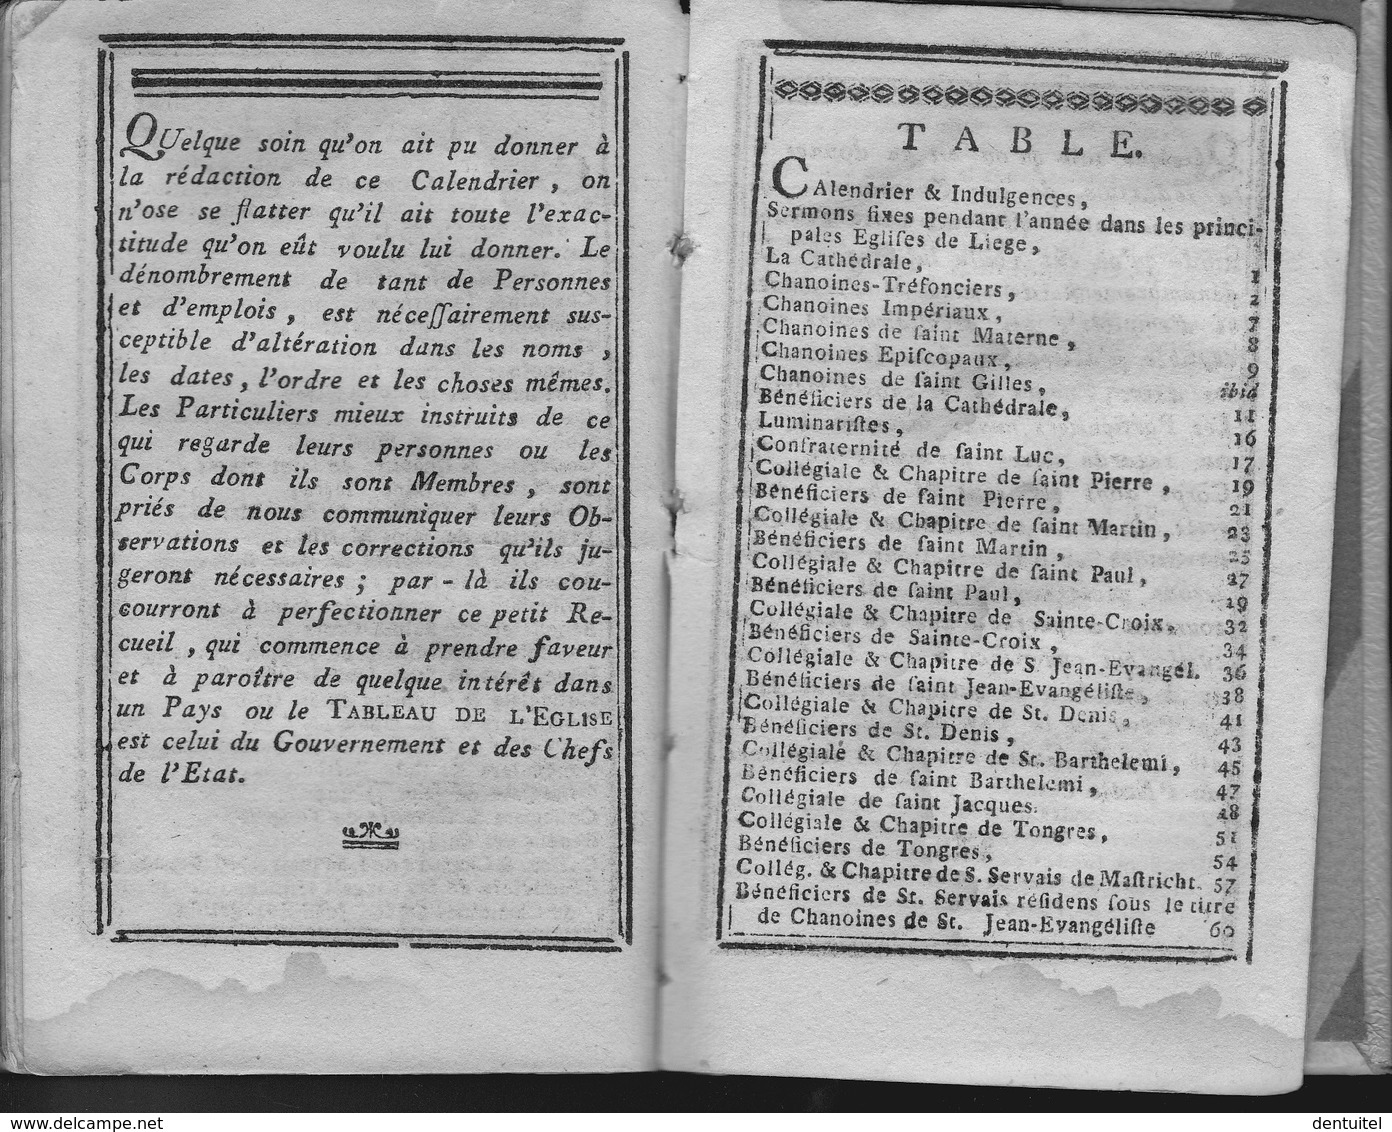 QUelque soin qu'on ait pu donner à
la rédaction de ce Calendrier, on
n'ose se flatter qu'il ait toute l'exac-
titude qu'on eût voulu lui donner. Le
dénombrement de tant de Personnes
et d'emplois, est néceſſairement sus-
ceptible d'altération dans les noms,
les dates, l'ordre et les choses mêmes.
Les Particuliers mieux instruits de ce
qui regarde leurs personnes ou les
Corps dont ils sont Membres, sont
priés de nous communiquer leurs Ob-
servations et les corrections qu'ils ju-
geront nécessaires; par-là ils cou-
courront à perfectionner ce petit Re-
cueil, qui commence à prendre faveur
et à paroître de quelque intérêt dans
un Pays ou le TABLEAU DE L'EGLISE
est celui du Gouvernement et des Chefs
de l'Etat.
TABLE.
CAlendrier & Indulgences,
Sermons fixes pendant l'année dans les princi-
pales Egliſes de Liege,
La Cathédrale, 1
Chanoines-Tréfonciers, 2
Chanoines Impériaux, 7
Chanoines de ſaint Materne, 8
Chanoines Epiſcopaux, 9
Chanoines de ſaint Gilles, ibid
Bénéficiers de la Cathédrale, 11
Luminariſtes, 16
Confraternité de ſaint Luc, 17
Collégiale & Chapitre de ſaint Pierre, 19
Bénéficiers de ſaint Pierre, 21
Collégiale & Chapitre de ſaint Martin, 23
Bénéficiers de ſaint Martin, 25
Collégiale & Chapitre de ſaint Paul, 27
Bénéficiers de ſaint Paul, 29
Collégiale & Chapitre de Sainte-Croix, 32
Bénéficiers de Sainte-Croix, 34
Collégiale & Chapitre de S. Jean-Evangél. 36
Bénéficiers de ſaint Jean-Evangéliſte, 38
Collégiale & Chapitre de St. Denis, 41
Bénéficiers de St. Denis, 43
Collégiale & Chapitre de St. Barthelemi, 45
Bénéficiers de ſaint Barthelemi, 47
Collégiale de ſaint Jacques. 48
Collégiale & Chapitre de Tongres, 51
Bénéficiers de Tongres, 54
Collég. & Chapitre de S. Servais de Maſtricht. 57
Bénéficiers de St. Servais réſidens ſous le titre
de Chanoines de St. Jean-Evangéliſte 60
dentuitel